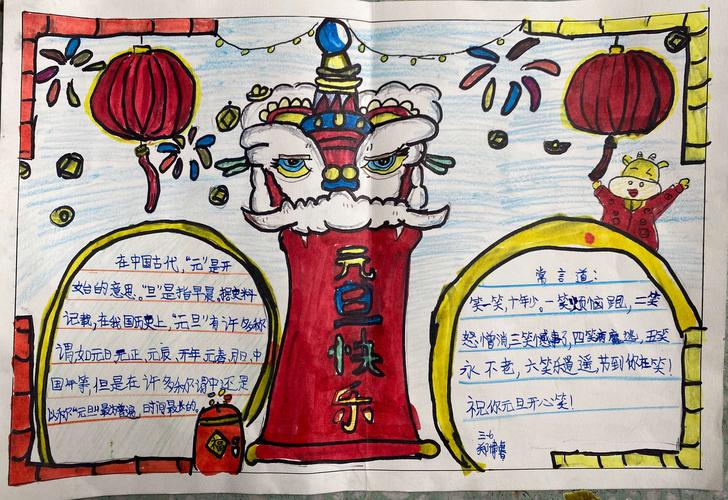 元旦快乐
在中国古代,“元”是开
始的意思.“旦”是指早晨.据史料
记载,在我国历史上,“元旦”有许多称
谓.如元日.元正.元辰.开年.元春.
国年等,但是在许多称谓中还是
以称“元旦”最 时间最长的.
福
常言道:
笑一笑,十年少。一笑烦恼跑,二笑
怒憎消三笑憾事了,四笑病魔逃,五笑
永不老,六笑乐逍遥,节到你在笑!
祝你元旦开心笑!
三6